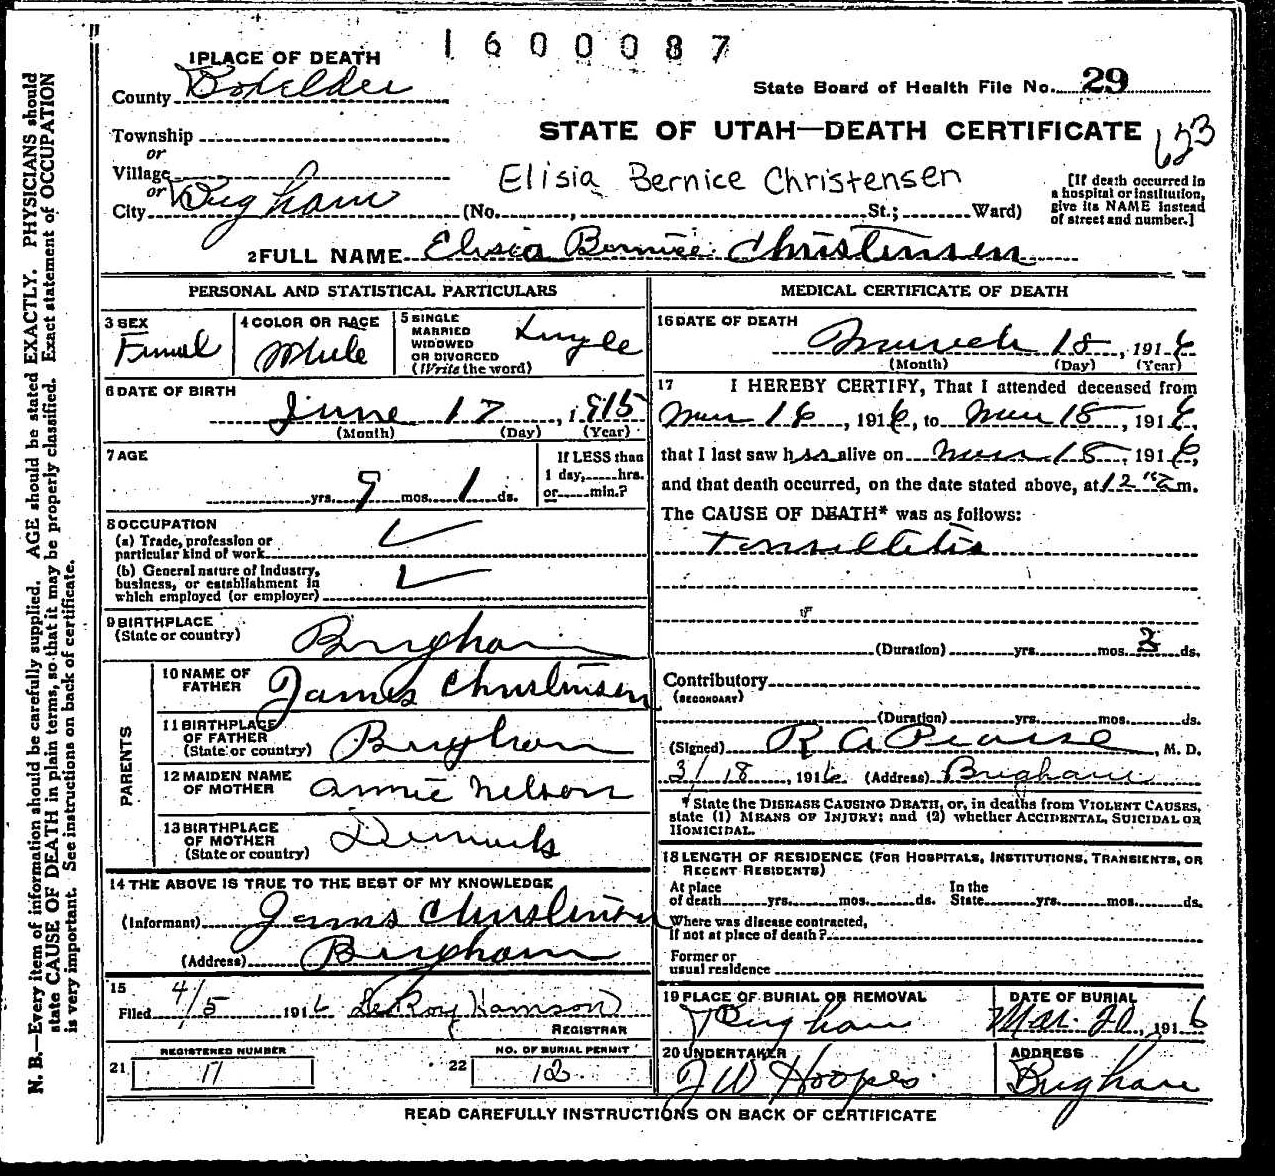 1600087
1 PLACE OF DEATH
County Boxelder
State Board of Health File No. 29
Township
or
STATE OF UTAH—DEATH CERTIFICATE
Village
Elisia Bernice Christensen
or
City Brigham (No. , St.; Ward)
[If death occurred in
a hospital or institution,
give its NAME instead
of street and number.]
2 FULL NAME Elisia Bernice Christensen
N. B.—Every item of information should be carefully supplied. AGE should be stated EXACTLY. PHYSICIANS should
state CAUSE OF DEATH in plain terms, so that it may be properly classified. Exact statement of OCCUPATION
is very important. See instructions on back of certificate.
PERSONAL AND STATISTICAL PARTICULARS
3 SEX
Femal
4 COLOR OR RACE
White
5 SINGLE
MARRIED
WIDOWED
OR DIVORCED
(Write the word)
Single
6 DATE OF BIRTH
June 17, 1915
(Month) (Day) (Year)
7 AGE
yrs. 9 mos. 1 ds.
If LESS than
1 day, hrs.
or min.?
8 OCCUPATION
(a) Trade, profession or
particular kind of work
(b) General nature of industry,
business, or establishment in
which employed (or employer)
9 BIRTHPLACE
(State or country) Brigham
PARENTS
10 NAME OF
FATHER James Christensen
11 BIRTHPLACE
OF FATHER
(State or country) Brigham
12 MAIDEN NAME
OF MOTHER Annie Nelson
13 BIRTHPLACE
OF MOTHER
(State or country)
14 THE ABOVE IS TRUE TO THE BEST OF MY KNOWLEDGE
(Informant) James Christensen
(Address) Brigham
15
Filed 4/5 1916 LeRoy
REGISTRAR
REGISTERED NUMBER
21 17
NO. OF BURIAL PERMIT
22 12
MEDICAL CERTIFICATE OF DEATH
16 DATE OF DEATH
March 18, 1916
(Month) (Day) (Year)
17 I HEREBY CERTIFY, That I attended deceased from
Mar 16, 1916, to Mar 18, 1916,
that I last saw h alive on Mar 18, 1916,
and that death occurred, on the date stated above, at 12 m.
The CAUSE OF DEATH* was as follows:
Tonsilitis
(Duration) yrs. mos. ds.
Contributory
(SECONDARY)
(Duration) yrs. mos. ds.
(Signed) R A Pearse, M. D.
3/18, 1916 (Address) Brigham
* State the DISEASE CAUSING DEATH, or, in deaths from VIOLENT CAUSES,
state (1) MEANS OF INJURY; and (2) whether ACCIDENTAL, SUICIDAL OR
HOMICIDAL.
18 LENGTH OF RESIDENCE (FOR HOSPITALS, INSTITUTIONS, TRANSIENTS, OR
RECENT RESIDENTS)
At place
of death yrs. mos. ds.
In the
State yrs. mos. ds.
Where was disease contracted,
If not at place of death?
Former or
usual residence
19 PLACE OF BURIAL OR REMOVAL
Brigham
DATE OF BURIAL
Mar. 20, 1916
20 UNDERTAKER
J W Hoopes
ADDRESS
Brigham
READ CAREFULLY INSTRUCTIONS ON BACK OF CERTIFICATE